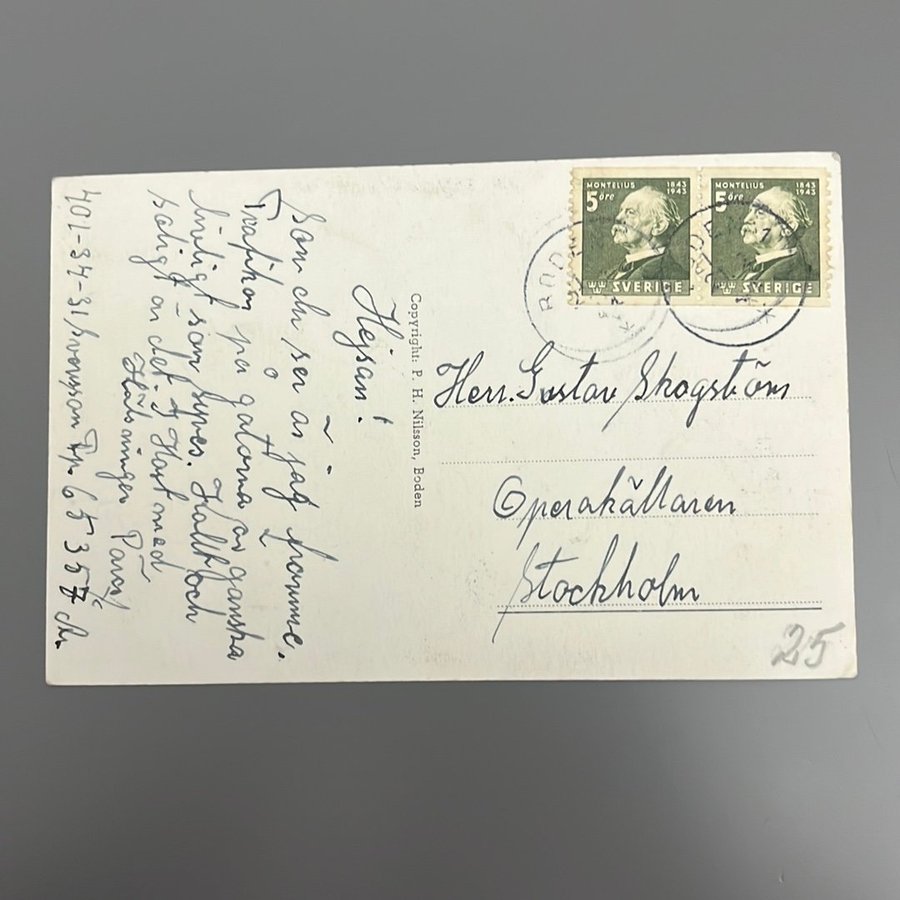 Hejsan!
Som du ser är jag framme.
Trafiken på gatorna är ganska
livligt som synes. Kallt och
roligt är det
Hälsningar
401-34-31 Svensson Fp. 65357 
Copyright: P. H. Nilsson, Boden
MONTELIUS 1843 1943
5 öre
SVERIGE
MONTELIUS 1843 1943
5 öre
SVERIGE
BODEN
BODEN
Herr. Gustav Skogström
Operakällaren
Stockholm
25